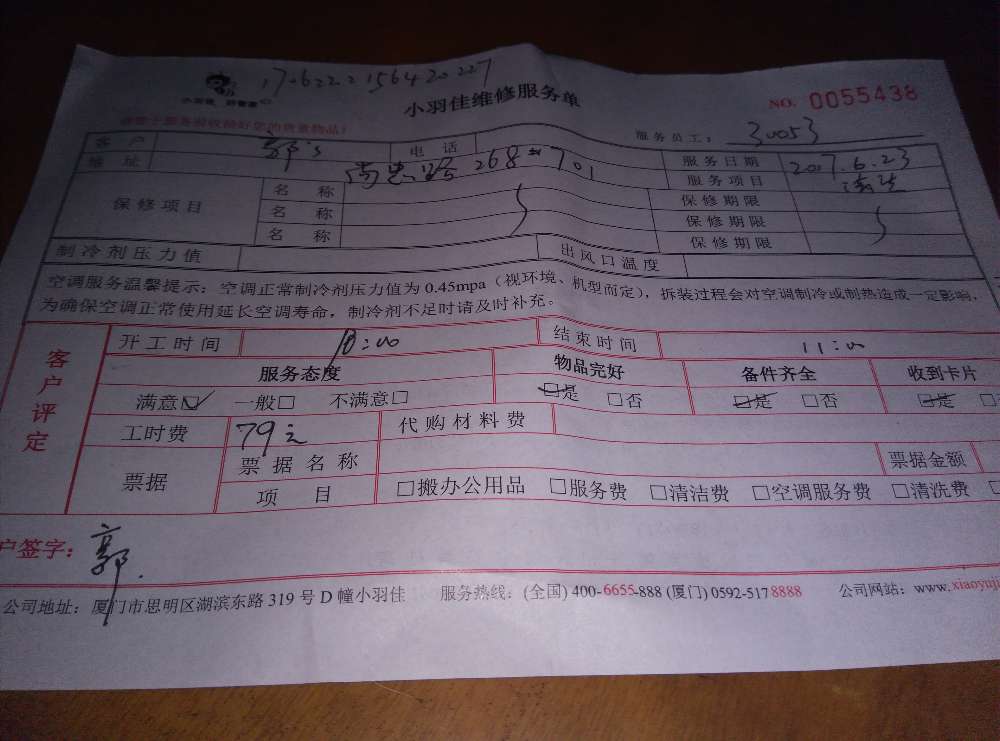 1706222156420227
小羽佳 好管家
小羽佳维修服务单
NO. 0055438
服务员工: 30053
客户 电话 服务日期 2017.6.23
地址 268 701 服务项目 清洗
保修项目 名称 保修期限
名称 保修期限
名称 保修期限
制冷剂压力值 出风口温度
空调服务温馨提示：空调正常制冷剂压力值为 0.45mpa（视环境、机型而定），拆装过程会对空调制冷或制热造成一定影响，
为确保空调正常使用延长空调寿命，制冷剂不足时请及时补充。
客户评定
开工时间 10:00 结束时间 11:00
服务态度 物品完好 备件齐全 收到卡片
满意☑ 一般□ 不满意□ ☑是 □否 ☑是 □否 ☑是 □
工时费 79元 代购材料费
票据 票据名称 票据金额
项目 □搬办公用品 □服务费 □清洁费 □空调服务费 □清洗费
户签字：郭
公司地址：厦门市思明区湖滨东路 319 号 D 幢小羽佳 服务热线：(全国) 400-6655-888 (厦门) 0592-5178888 公司网站：www.xiaoyuji